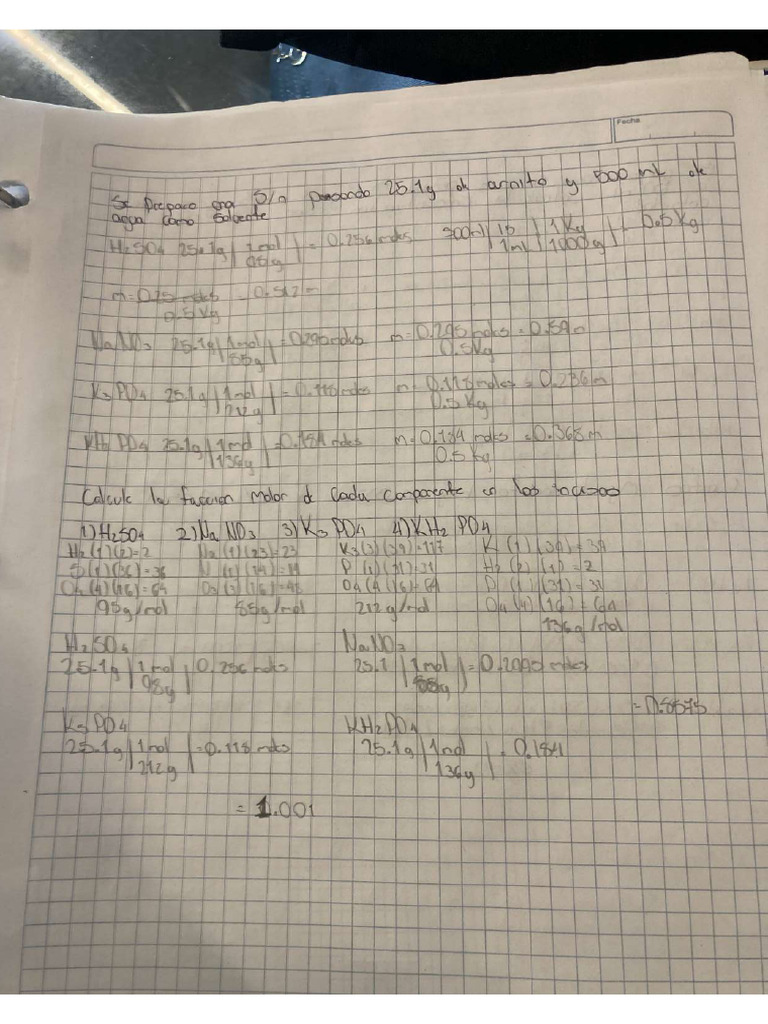 Fecha
Se preparo una S/n pesando 25.1g de soluto y 500 ml de
agua como solvente
H₂SO₄ 25.1g | 1mol / 98g | = 0.256 moles 500ml | 1g / 1ml | 1Kg / 1000g | = 0.5Kg
m = 0.25 moles / 0.5Kg = 0.512m
NaNO₃ 25.1g | 1mol / 85g | = 0.295 moles m = 0.295 moles / 0.5Kg = 0.59m
K₃PO₄ 25.1g | 1mol / 212g | = 0.118 moles m = 0.118 moles / 0.5Kg = 0.236m
KH₂PO₄ 25.1g | 1mol / 136g | = 0.184 moles m = 0.184 moles / 0.5kg = 0.368m
Calcule la fraccion molar de cada componente en los
1) H₂SO₄ 2) NaNO₃ 3) K₃PO₄ 4) KH₂PO₄
H₂(1)(2)=2 Na(1)(23)=23 K₃(3)(39)=117 K(1)(39)=39
N(1)(14)=14 P(1)(31)=31 H₂(2)(1)=2
O₄(4)(16)=64 O₃(3)(16)=48 O₄(4)(16)=64 P(1)(31)=31
98g/mol 85g/mol 212g/mol O₄(4)(16)=64
136g/mol
H₂SO₄ NaNO₃
25.1g | 1mol / 98g | 0.256 moles 25.1 | 1mol / 85g | = moles
= 0.8575
K₃PO₄ KH₂PO₄
25.1g | 1mol / 212g | = 0.118 moles 25.1g | 1mol / 136g | = 0.184
= 1.001